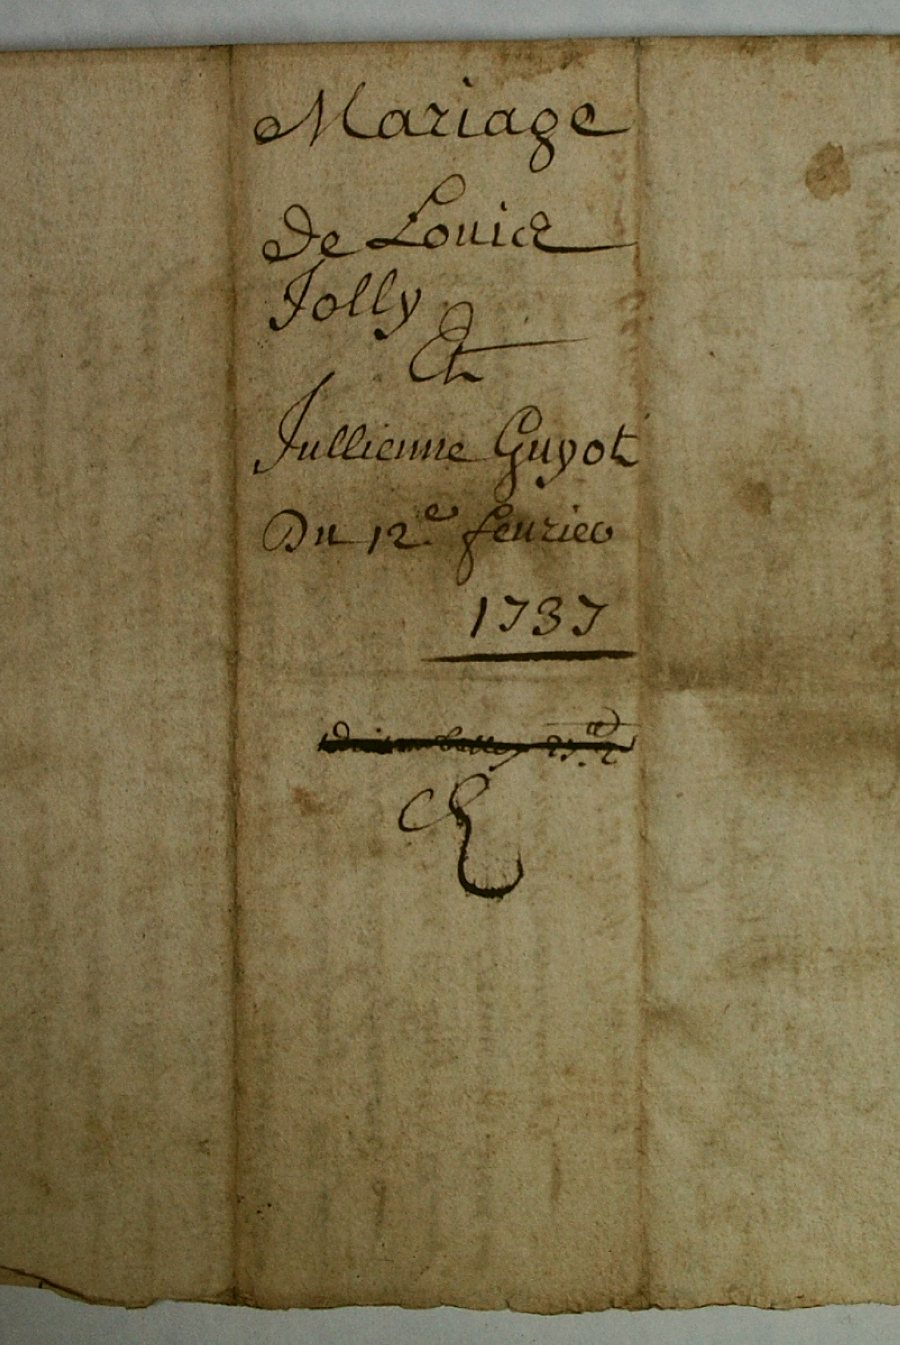 Mariage
De Louis
Jolly
Et
Jullienne Guyot
Du 12e feurier
1737